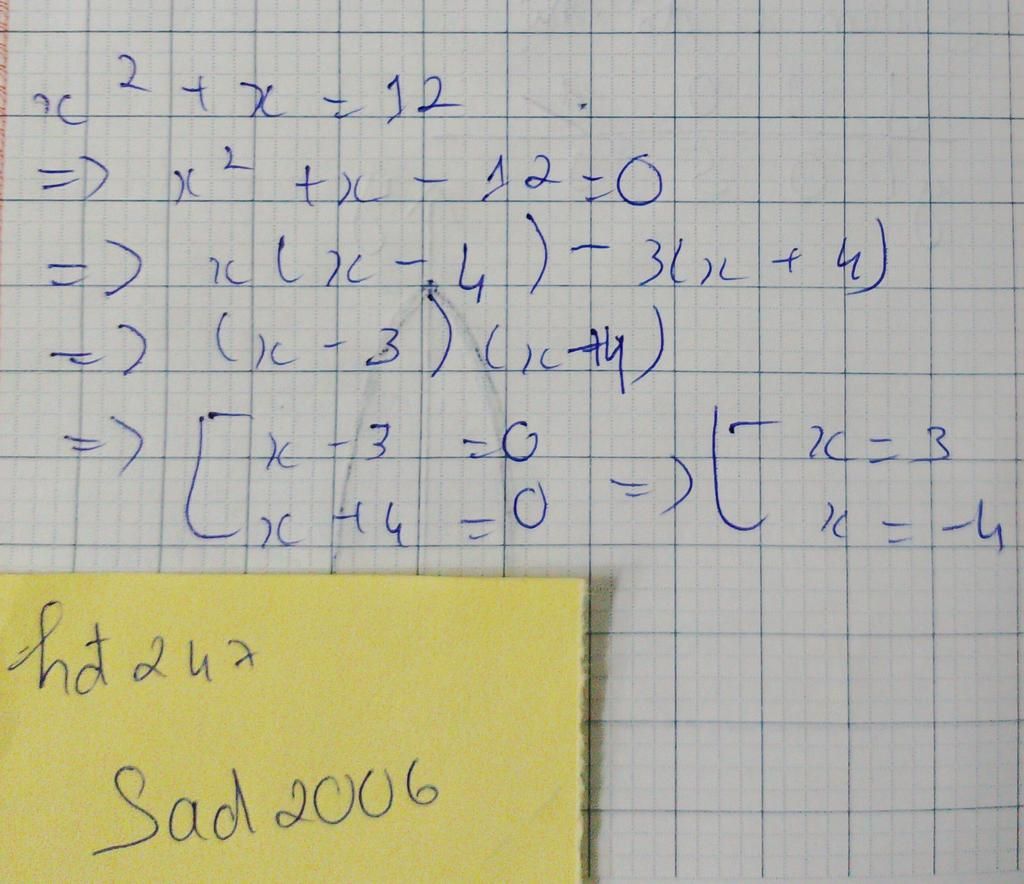 x² + x = 12
=> x² + x - 12 = 0
=> x(x - 4) - 3(x + 4)
=> (x - 3)(x + 4)
=> [ x - 3 = 0 => [ x = 3
x + 4 = 0 x = -4
hđ 247
Sad 2006